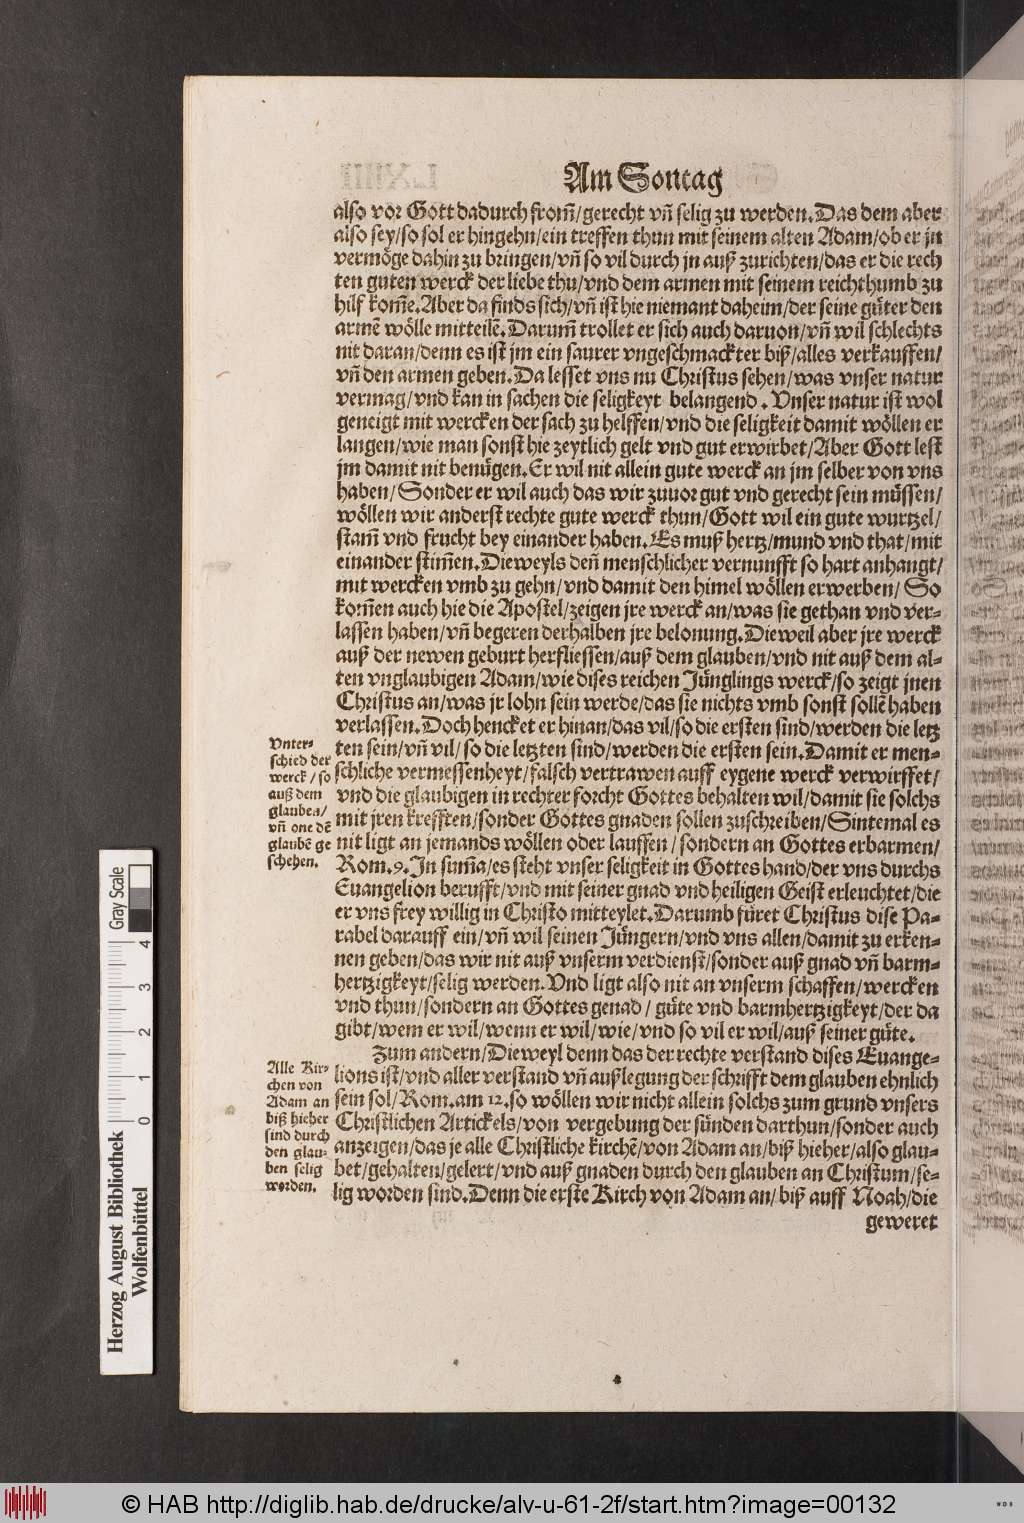 Am Sontag
also vor Gott dadurch from̃/gerecht vñ selig zu werden.Das dem aber
also sey/so sol er hingehn/ein treffen thun mit seinem alten Adam/ob er jn
vermöge dahin zu bringen/vñ so vil durch jn auß zurichten/das er die rech
ten guten werck der liebe thu/vnd dem armen mit seinem reichthumb zu
hilf kom̃e.Aber da finds sich/vñ ist hie niemant daheim/der seine güter den
armẽ wölle mitteilẽ.Darum̃ trollet er sich auch daruon/vñ wil schlechts
nit daran/denn es ist jm ein saurer vngeschmackter biß/alles verkauffen/
vñ den armen geben.Da lesset vns nu Christus sehen/was vnser natur
vermag/vnd kan in sachen die seligkeyt belangend.Vnser natur ist wol
geneigt mit wercken der sach zu helffen/vnd die seligkeit damit wöllen er
langen/wie man sonst hie zeytlich gelt vnd gut erwirbet/Aber Gott lest
jm damit nit benügen.Er wil nit allein gute werck an jm selber von vns
haben/Sonder er wil auch das wir zuuor gut vnd gerecht sein müssen/
wöllen wir anderst rechte gute werck thun/Gott wil ein gute wurtzel/
stam̃ vnd frucht bey einander haben.Es muß hertz/mund vnd that/mit
einander stim̃en.Dieweyls deñ menschlicher vernunfft so hart anhangt/
mit wercken vmb zu gehn/vnd damit den himel wöllen erwerben/So
kom̃en auch hie die Apostel/zeigen jre werck an/was sie gethan vnd ver-
lassen haben/vñ begeren derhalben jre belonung.Dieweil aber jre werck
auß der newen geburt herfliessen/auß dem glauben/vnd nit auß dem al-
ten vnglaubigen Adam/wie dises reichen Jünglings werck/so zeigt jnen
Christus an/was jr lohn sein werde/das sie nichts vmb sonst sollẽ haben
verlassen.Doch hencket er hinan/das vil/so die ersten sind/werden die letz
ten sein/vñ vil/so die letzten sind/werden die ersten sein.Damit er men-
schliche vermessenheyt/falsch vertrawen auff eygene werck verwirffet/
vnd die glaubigen in rechter forcht Gottes behalten wil/damit sie solchs
mit jren krefften/sonder Gottes gnaden sollen zuschreiben/Sintemal es
nit ligt an jemands wöllen oder lauffen/sondern an Gottes erbarmen/
Rom.9.In sum̃a/es steht vnser seligkeit in Gottes hand/der vns durchs
Euangelion berufft/vnd mit seiner gnad vnd heiligen Geist erleuchtet/die
er vns frey willig in Christo mitteylet.Darumb füret Christus dise Pa-
rabel darauff ein/vñ wil seinen Jüngern/vnd vns allen/damit zu erken-
nen geben/das wir nit auß vnserm verdienst/sonder auß gnad vñ barm-
hertzigkeyt/selig werden.Vnd ligt also nit an vnserm schaffen/wercken
vnd thun/sondern an Gottes genad/güte vnd barmhertzigkeyt/der da
gibt/wem er wil/wenn er wil/wie/vnd so vil er wil/auß seiner güte.
Zum andern/Dieweyl denn das der rechte verstand dises Euange-
lions ist/vnd aller verstand vñ außlegung der schrifft dem glauben ehnlich
sein sol/Rom.am 12.so wöllen wir nicht allein solchs zum grund vnsers
Christlichen Artickels/von vergebung der sünden darthun/sonder auch
anzeigen/das je alle Christliche kirchẽ/von Adam an/biß hieher/also glau-
bet/gehalten/gelert/vnd auß gnaden durch den glauben an Christum/se-
lig worden sind.Denn die erste Kirch von Adam an/biß auff Noah/die
geweret
Vnter-
schied der
werck/so
auß dem
glauben/
vñ one dẽ
glaubẽ ge
schehen.
Alle Kir-
chen von
Adam an
biß hieher
sind durch
den glau-
ben selig
worden.
Gray Scale
4
3
2
1
0
Herzog August Bibliothek
Wolfenbüttel
© HAB http://diglib.hab.de/drucke/alv-u-61-2f/start.htm?image=00132
WDB